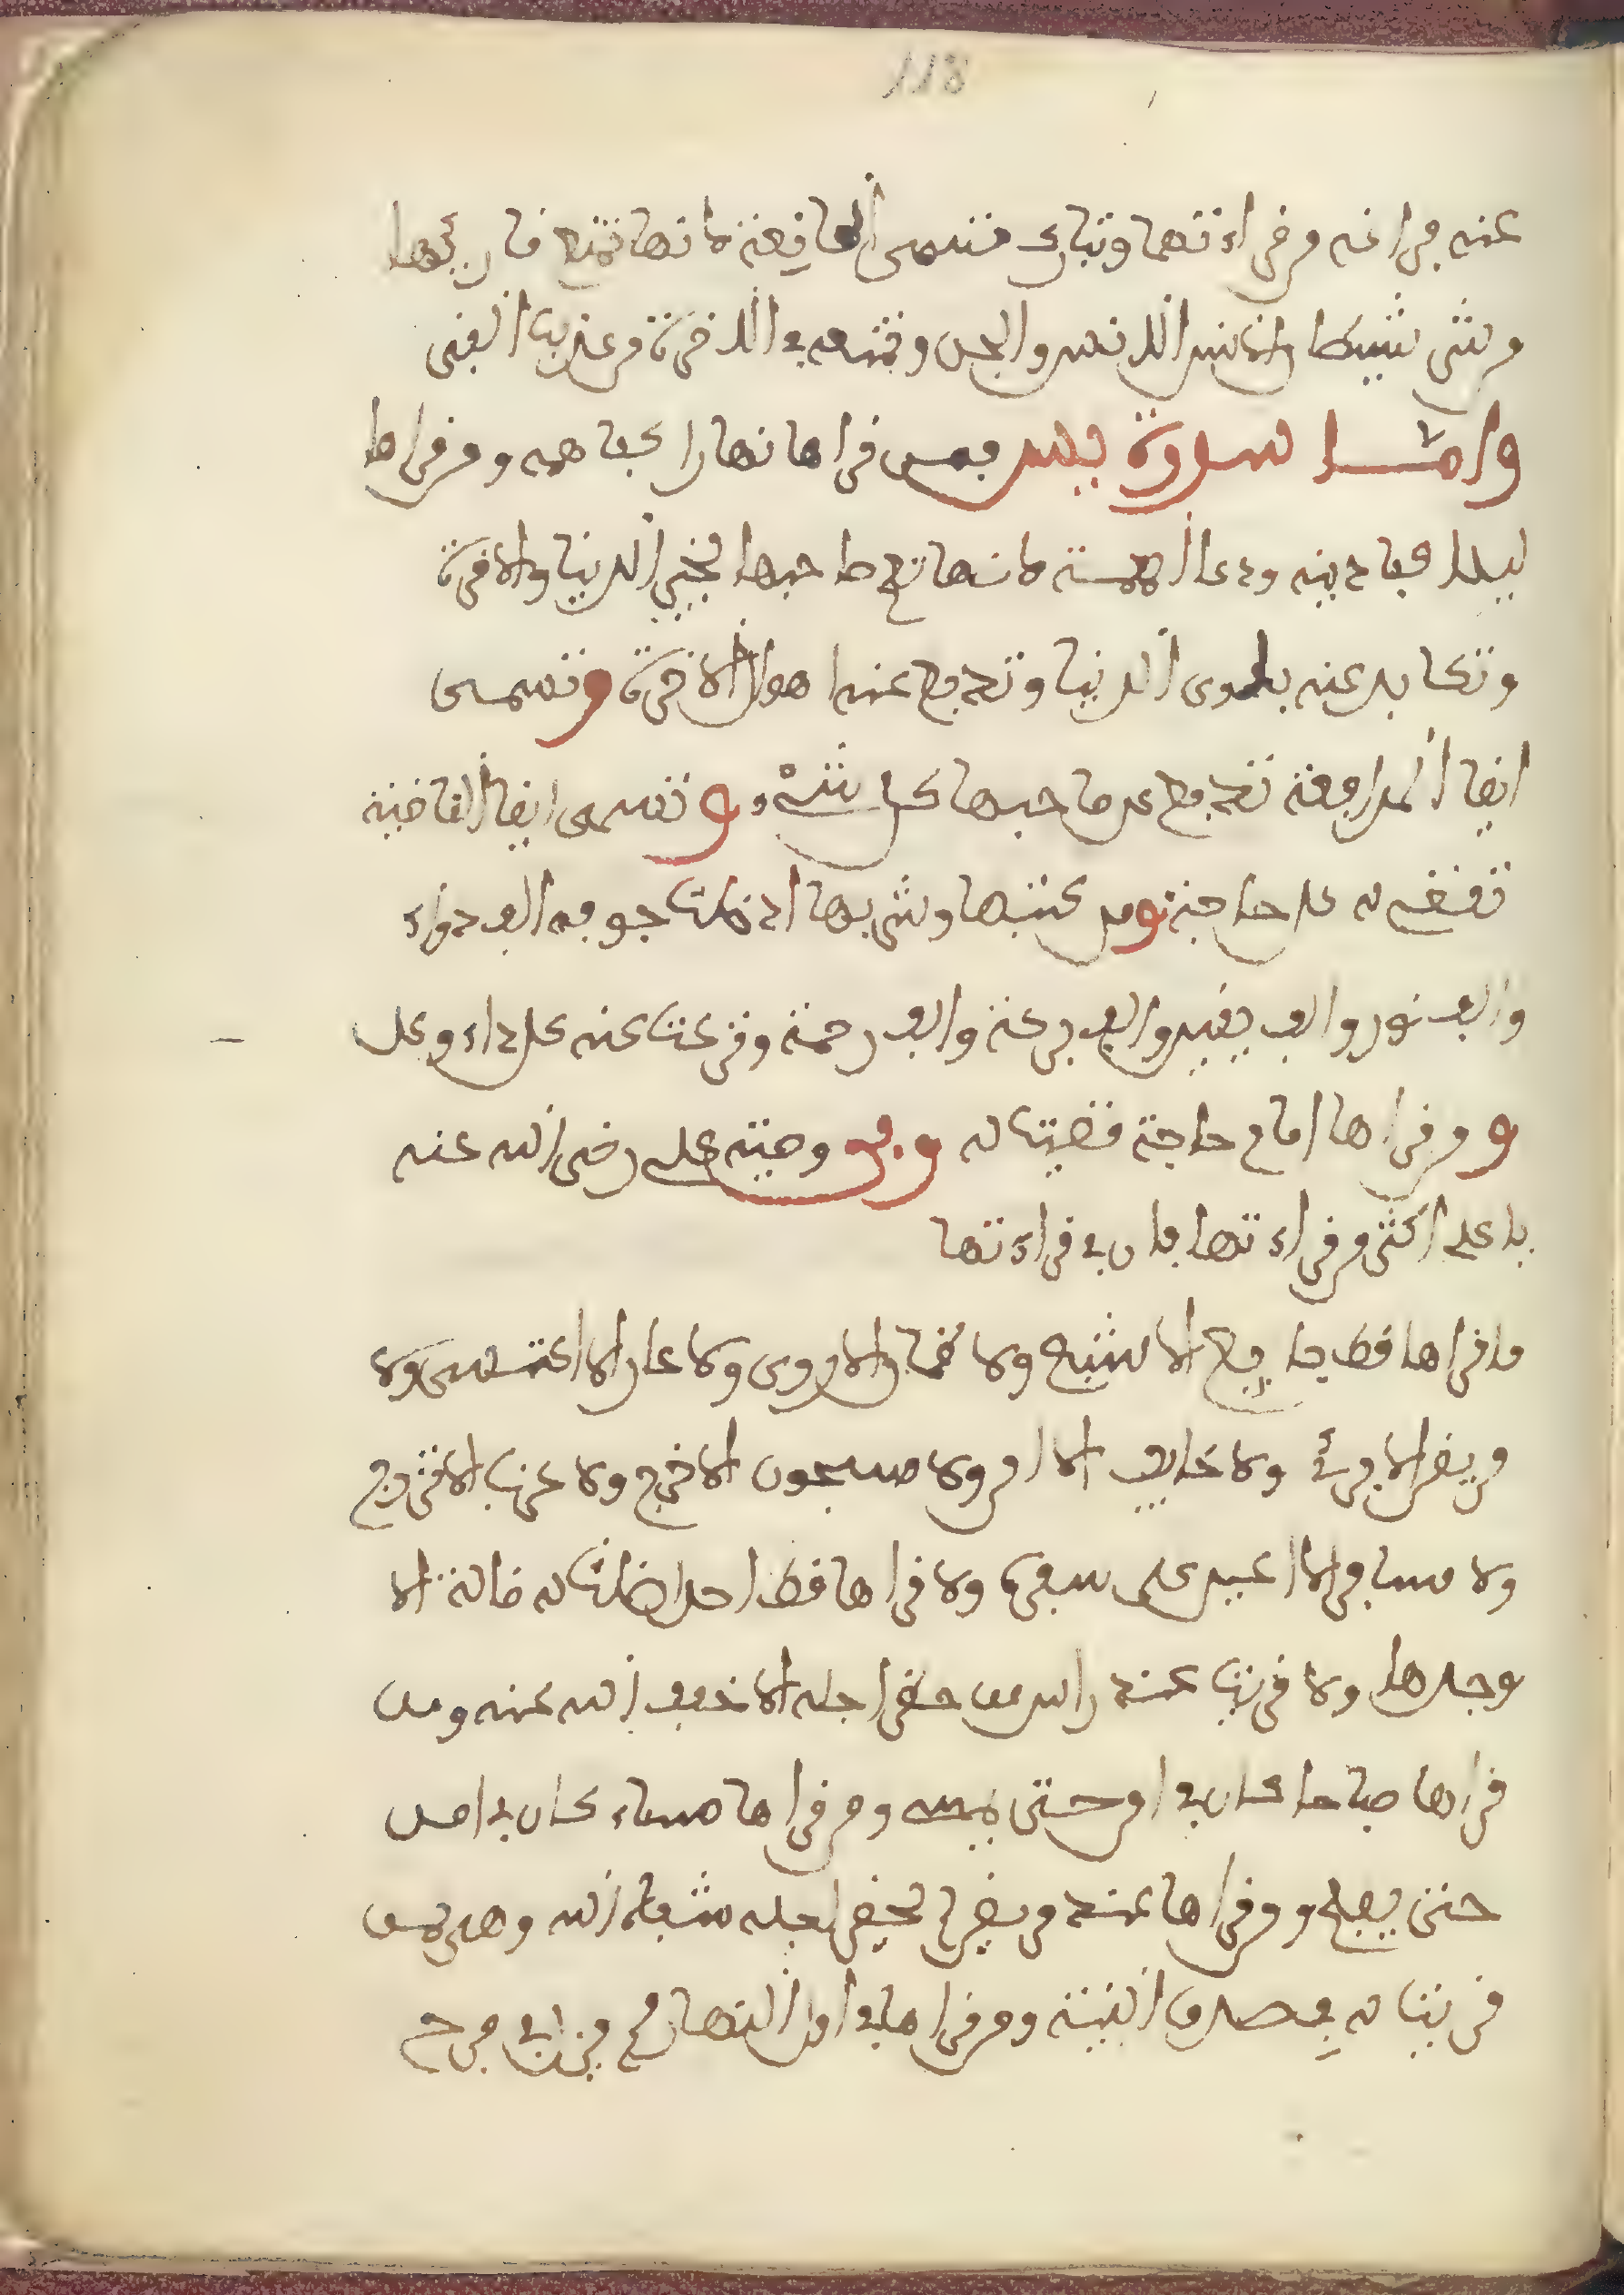 118
عنه فراغه من قراءتها وتبارك تسمى المانعة لانها تمنع قاريها
من شر شيطان الانس والجن وتمنعه في الاخرة من عذاب القبر
واما سورة يس فمن قراها نهارا كفا همه ومن قراها
ليلا دينه ودعا المعمة لانها تعم صاحبها بخير الدنيا والاخرة
وتكابد عنه بلوى الدنيا وتدفع عنه اهوال الاخرة وتسمى
ايضا المدافعة تدفع عن صاحبها كل شر وتسمى ايضا القاضية
تقضى له كل حاجة ومن كتبها وشربها ادخلت جوفه الف دواء
والف نور والف يقين والف بركة والف رحمة ونزعت عنه كل داء وغل
ومن قراها امام حاجة قضيت له وفي وصية علي رضي الله عنه
يا علي اكثر من قراءة تها فان في قراءتها
ما قراها قط جايع الا شبع ولا ظمان الا روى ولا عار الا اكتسى ولا
مريض الا برئ ولا خايف الا امن ولا مسجون الا خرج ولا عزب الا تزوج
ولا مسافر الا اعين على سفره ولا قراها قط احد اضلت له ضالة الا
وجدها ولا قريت عند راس من حضر اجله الا خفف الله عنه ومن
قراها صباحا كان في امن حتى يمسي ومن قراها مساء كان في امن
حتى يصبح ومن قراها عند مريض لم يحضر اجله شفاه الله وهي لمن
قريت له بصدق النية ومن قراها في اول النهار لم يزل في فرح